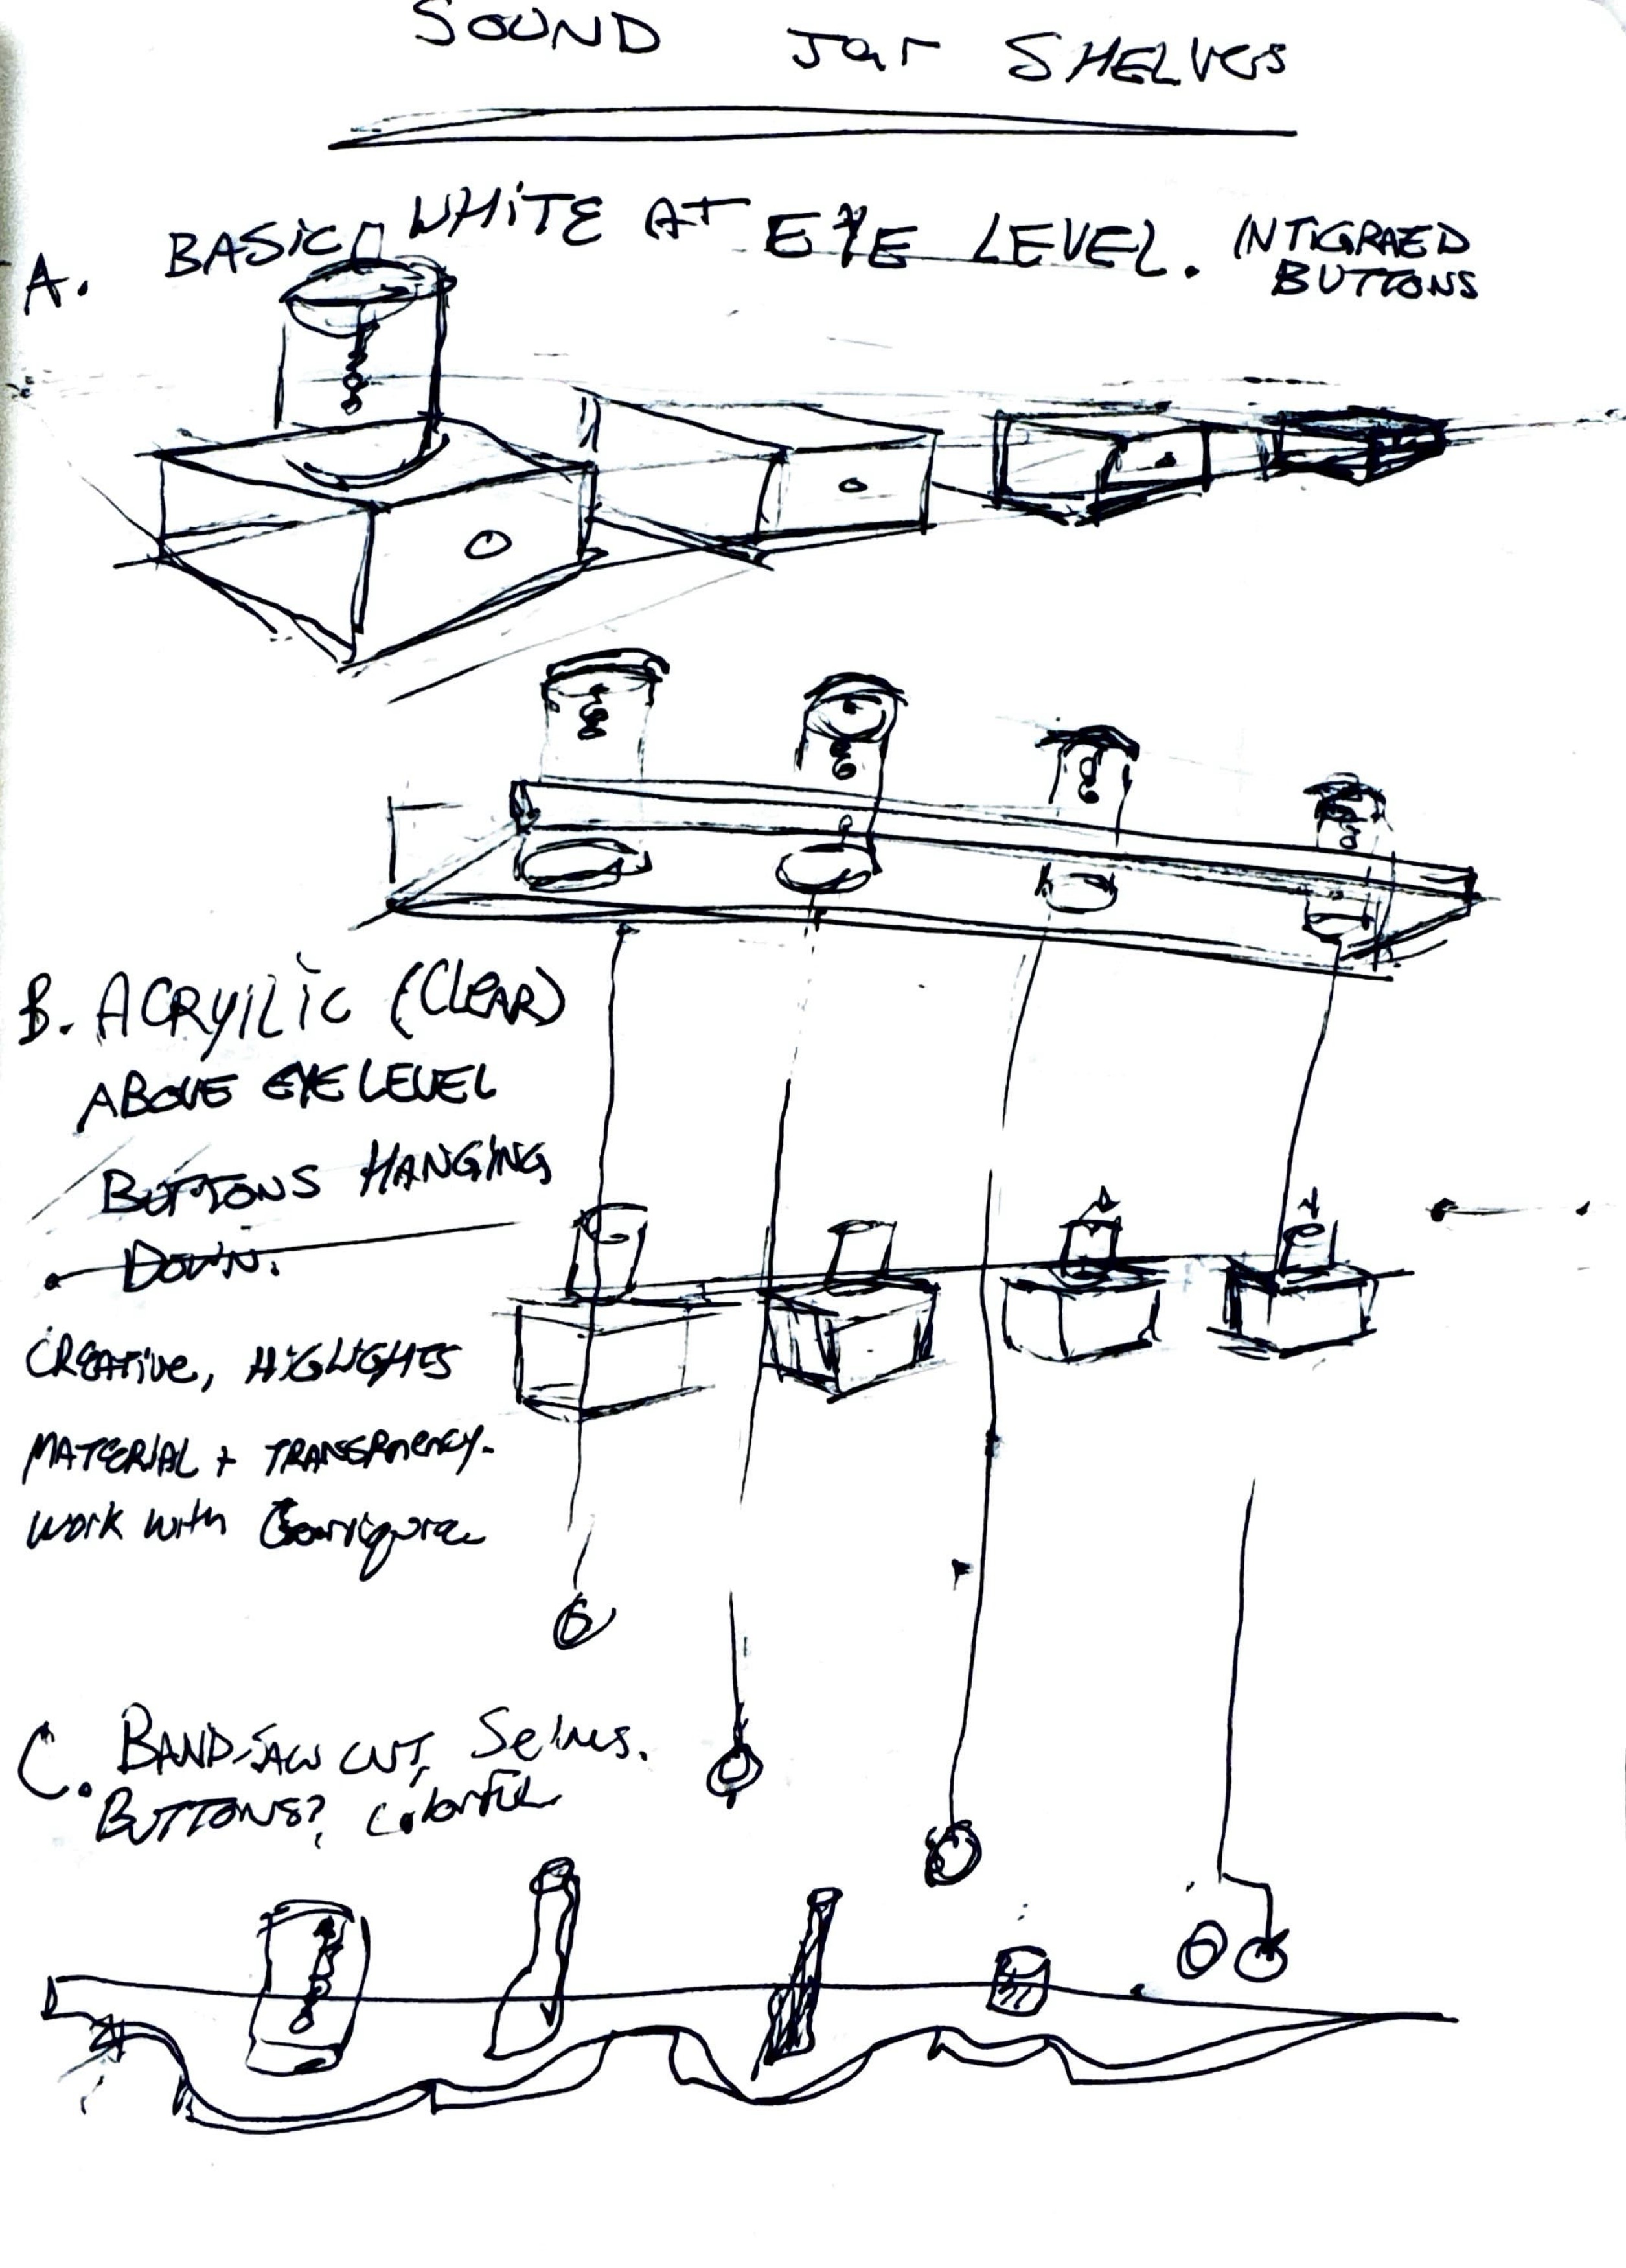 SOUND Jar SHELVES
A. BASIC WHITE AT EYE LEVEL. INTIGRAED
BUTTONS
B. ACRYILIC (CLEAR)
ABOVE EYE LEVEL
BUTTONS HANGING
DOWN.
CREATIVE, HIGLIGHTS
MATERIAL + TRANSPARENCY.
WORK WITH
C. BAND-SAW CUT,
BUTTONS? COLORFUL